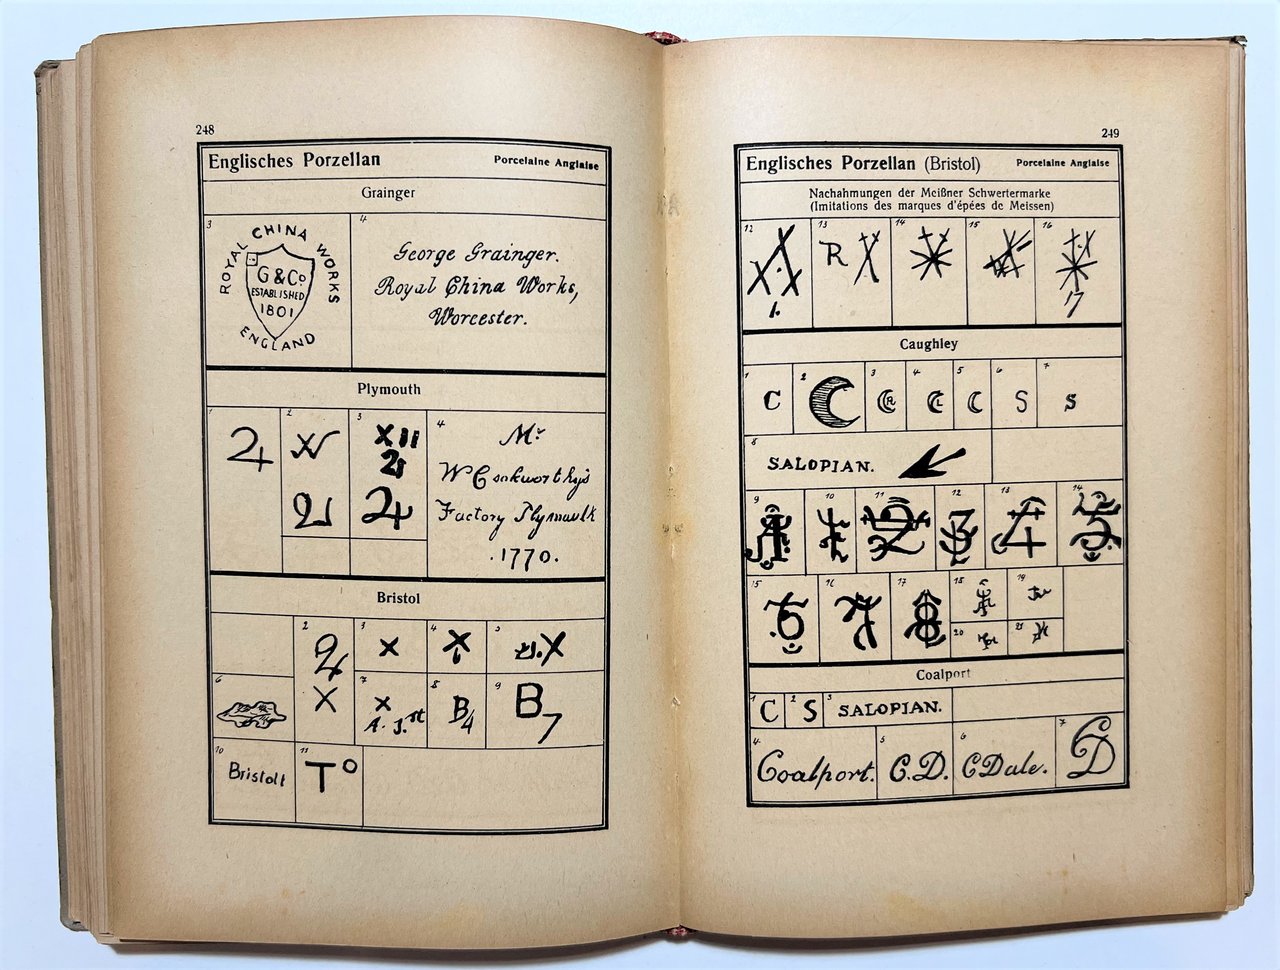 248
Englisches Porzellan
Porcelaine Anglaise
Grainger
3
4
ROYAL CHINA WORKS
G & Co
ESTABLISHED
1801
ENGLAND
George Grainger.
Royal China Works,
Worcester.
Plymouth
1
2
3
4
XII
Mr
W Cookworthy's
Factory Plymouth
.1770.
Bristol
2
3
4
5
x
x
X
6
7
8
9
X
x
A. J.st
B4
B7
10
11
Bristoll
To
249
Englisches Porzellan (Bristol)
Porcelaine Anglaise
Nachahmungen der Meißner Schwertermarke
(Imitations des marques d'épées de Meissen)
12
13
14
15
16
R
1.
17
Caughley
1
2
3
4
5
6
7
C
C
S
S
8
SALOPIAN.
9
10
11
12
13
14
15
16
17
18
19
20
21
Coalport
1
2
3
C
S
SALOPIAN.
4
5
6
7
Coalport.
C.D.
CDale.
CD